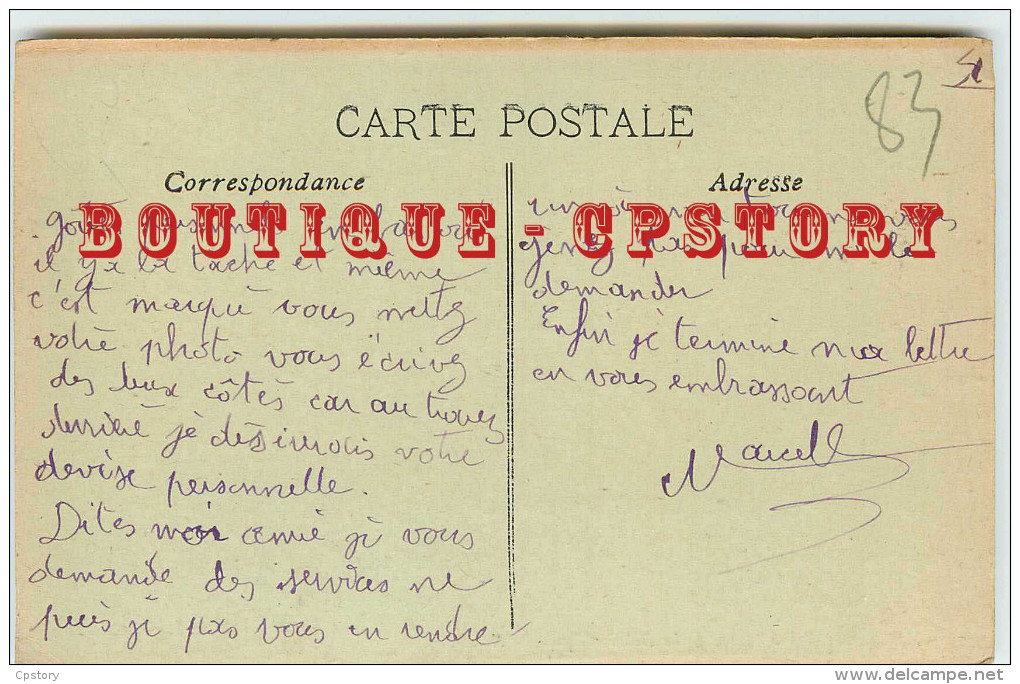 83
CARTE POSTALE
Correspondance
Adresse
BOUTIQUE - CPSTORY
il y a la tache et même
c'est marqué vous mettez
votre photo vous écrivez
des deux côtés car au
derrière je désirerais votre
devise personnelle.
Dites moi amie je vous
demande des services ne
puis je pas vous en rendre
demander
Enfin je termine ma lettre
en vous embrassant
Marcell
Cpstory
delcampe.net